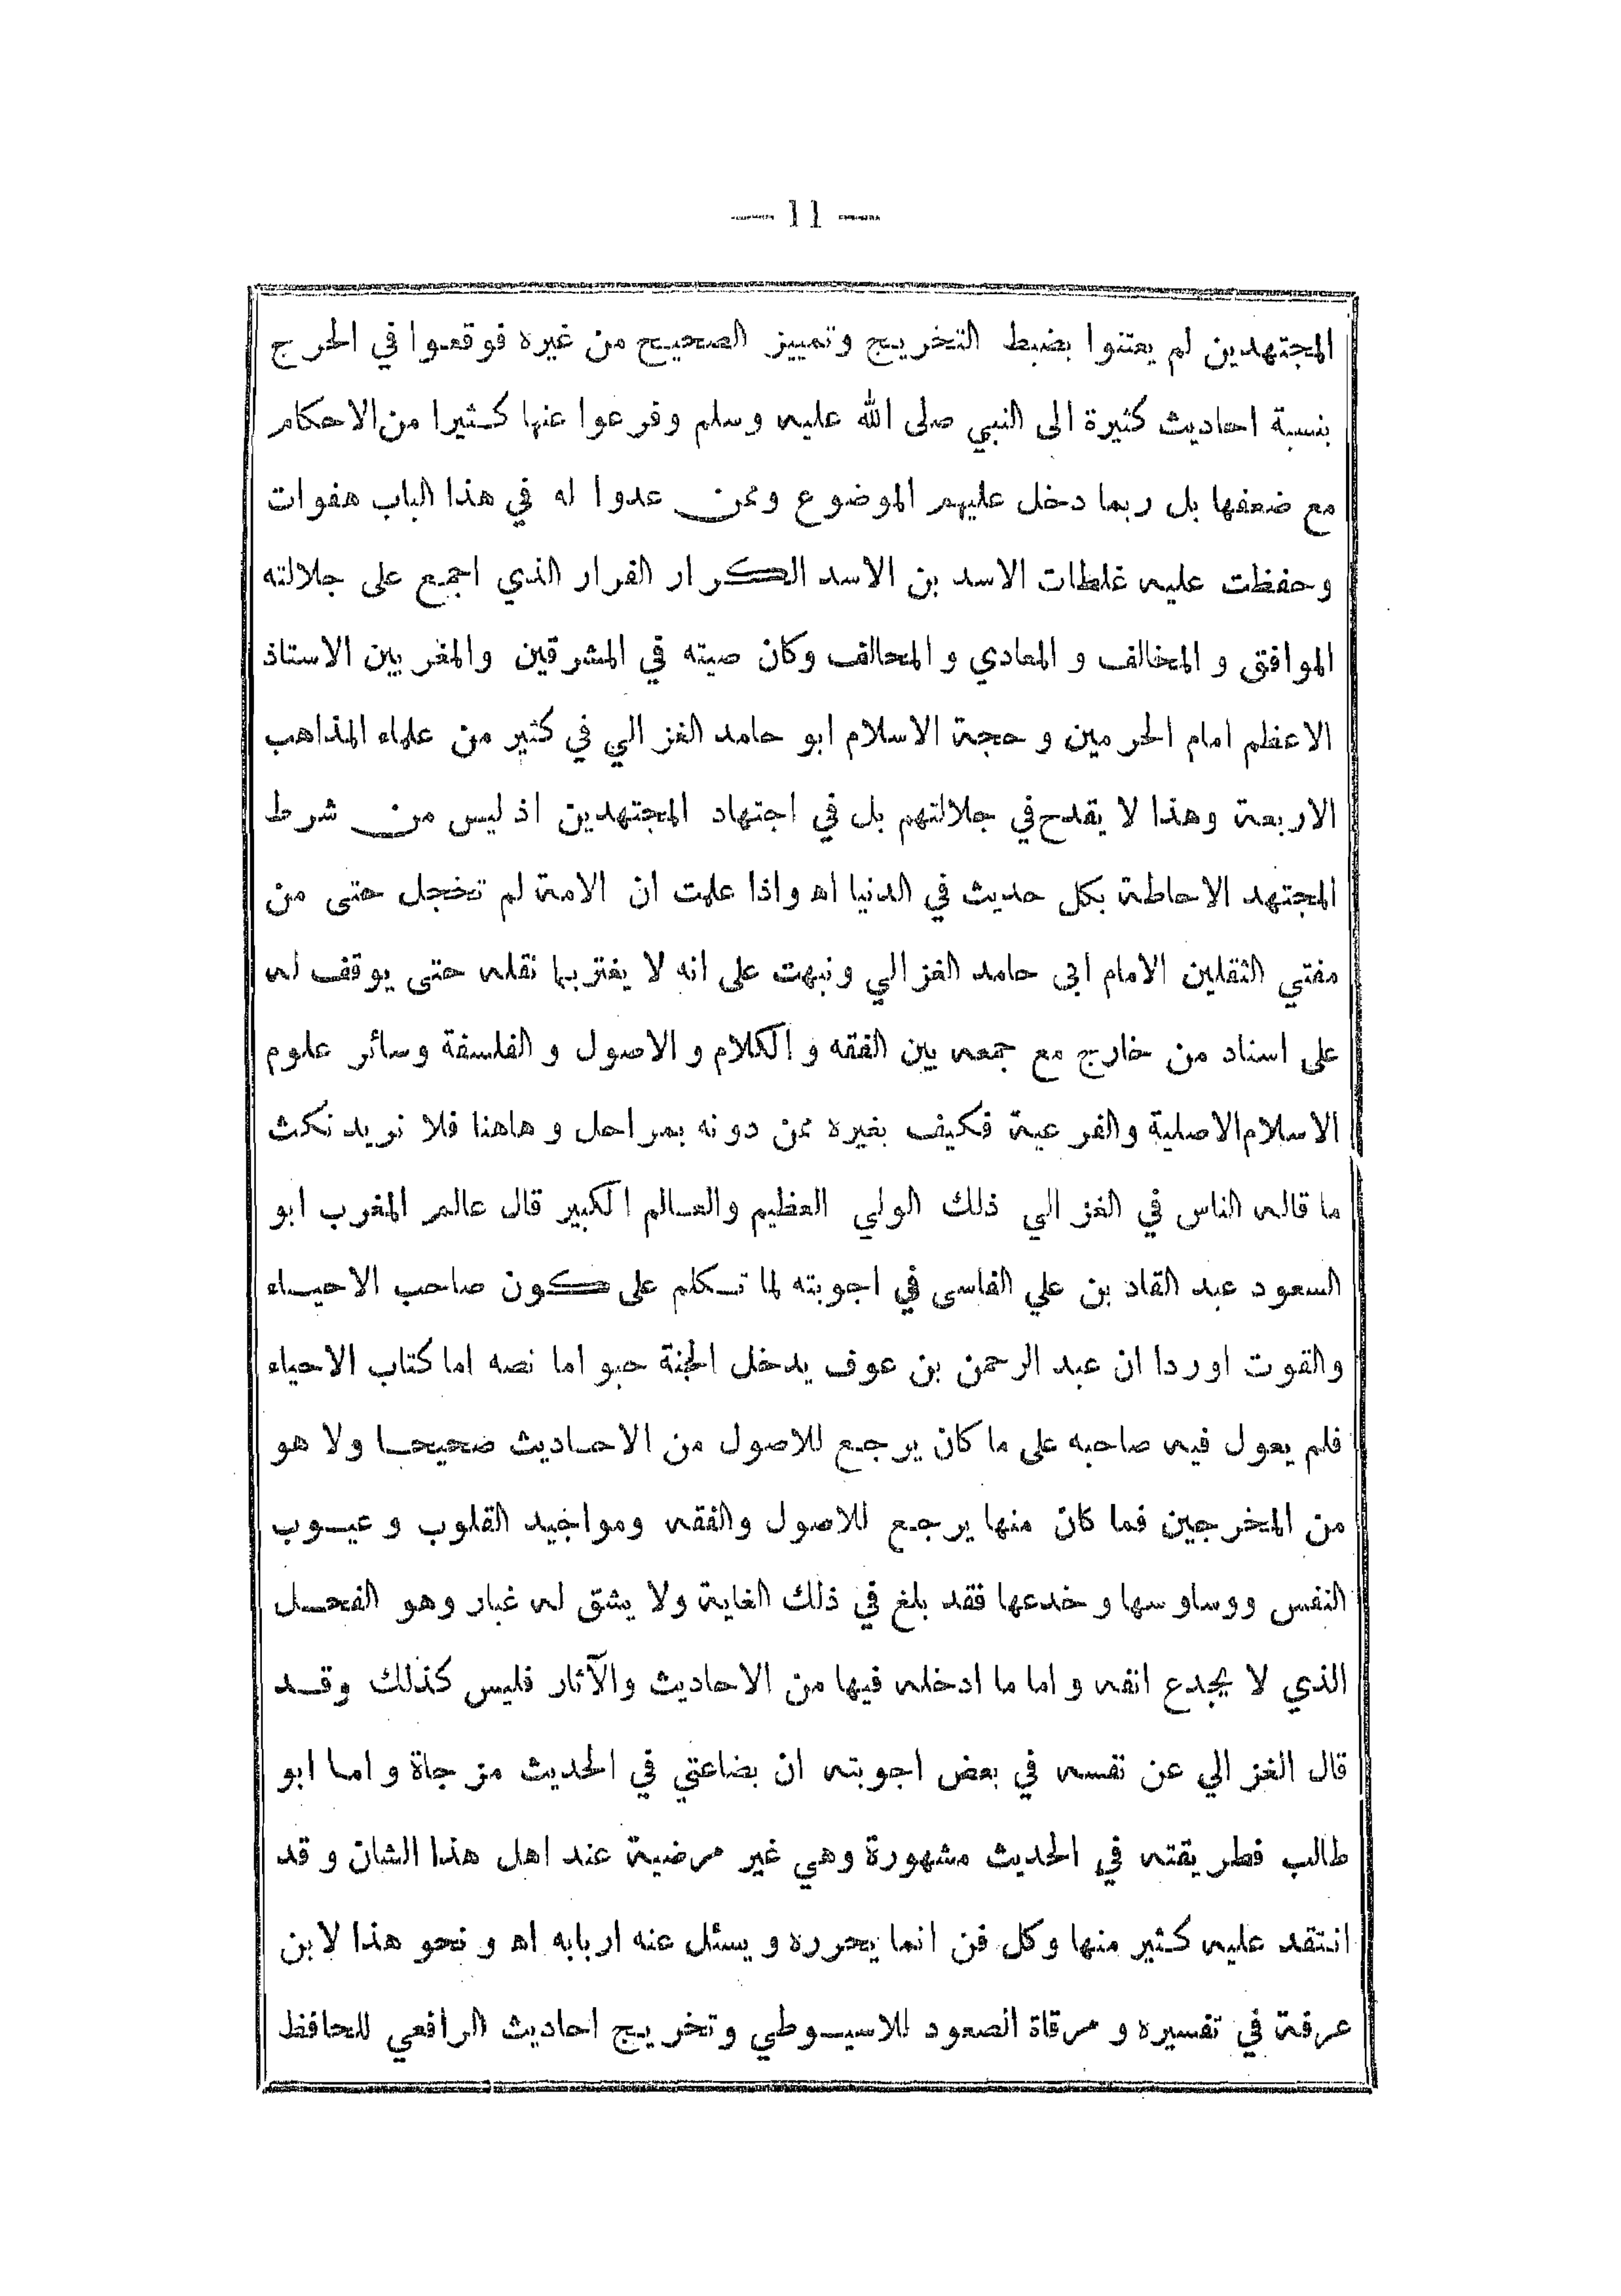 — 11 —
المجتهدين لم يعتنوا بضبط التخريج وتمييز الصحيح من غيره فوقعوا في الحرج
بنسبة احاديث كثيرة الى النبي صلى الله عليه وسلم وفرعوا عنها كثيرا من الاحكام
مع ضعفها بل ربما دخل عليهم الموضوع وممن عدوا له في هذا الباب هفوات
وحفظت عليه غلطات الاسد بن الاسد الكرار الفرار الذي اجمع على جلالته
الموافق و المخالف و المعادي و المحالف وكان صيته في المشرقين والمغربين الاستاذ
الاعظم امام الحرمين و حجة الاسلام ابو حامد الغزالي في كثير من علماء المذاهب
الاربعة وهذا لا يقدح في جلالتهم بل في اجتهاد المجتهدين اذ ليس من شرط
المجتهد الاحاطة بكل حديث في الدنيا اه واذا علمت ان الامة لم تخجل حتى من
مفتي الثقلين الامام ابي حامد الغزالي ونبهت على انه لا يغتر بما نقله حتى يوقف له
على اسناد من خارج مع جمعه بين الفقه و الكلام و الاصول و الفلسفة وسائر علوم
الاسلام الاصلية والفرعية فكيف بغيره ممن دونه بمراحل وهاهنا فلا نريد نكث
ما قاله الناس في الغزالي ذلك الولي العظيم والعالم الكبير قال عالم المغرب ابو
السعود عبد القاد بن علي الفاسى في اجوبته لما تكلم على كون صاحب الاحياء
والقوت اوردا ان عبد الرحمن بن عوف يدخل الجنة حبو اما نصه اما كتاب الاحياء
فلم يعول فيه صاحبه على ما كان يرجع للاصول من الاحاديث صحيحا ولا هو
من المخرجين فما كان منها يرجع للاصول والفقه ومواجيد القلوب و عيوب
النفس ووساوسها و خدعها فقد بلغ في ذلك الغاية ولا يشق له غبار وهو الفحل
الذي لا يجدع انفه و اما ما ادخله فيها من الاحاديث والآثار فليس كذلك وقد
قال الغزالي عن نفسه في بعض اجوبته ان بضاعتي في الحديث مزجاة و اما ابو
طالب فطريقته في الحديث مشهورة وهي غير مرضية عند اهل هذا الشان و قد
انتقد عليه كثير منها وكل فن انما يحرره و يسئل عنه اربابه اه و نحو هذا لابن
عرفة في تفسيره و مرقاة الصعود للاسيوطي وتخريج احاديث الرافعي للحافظ